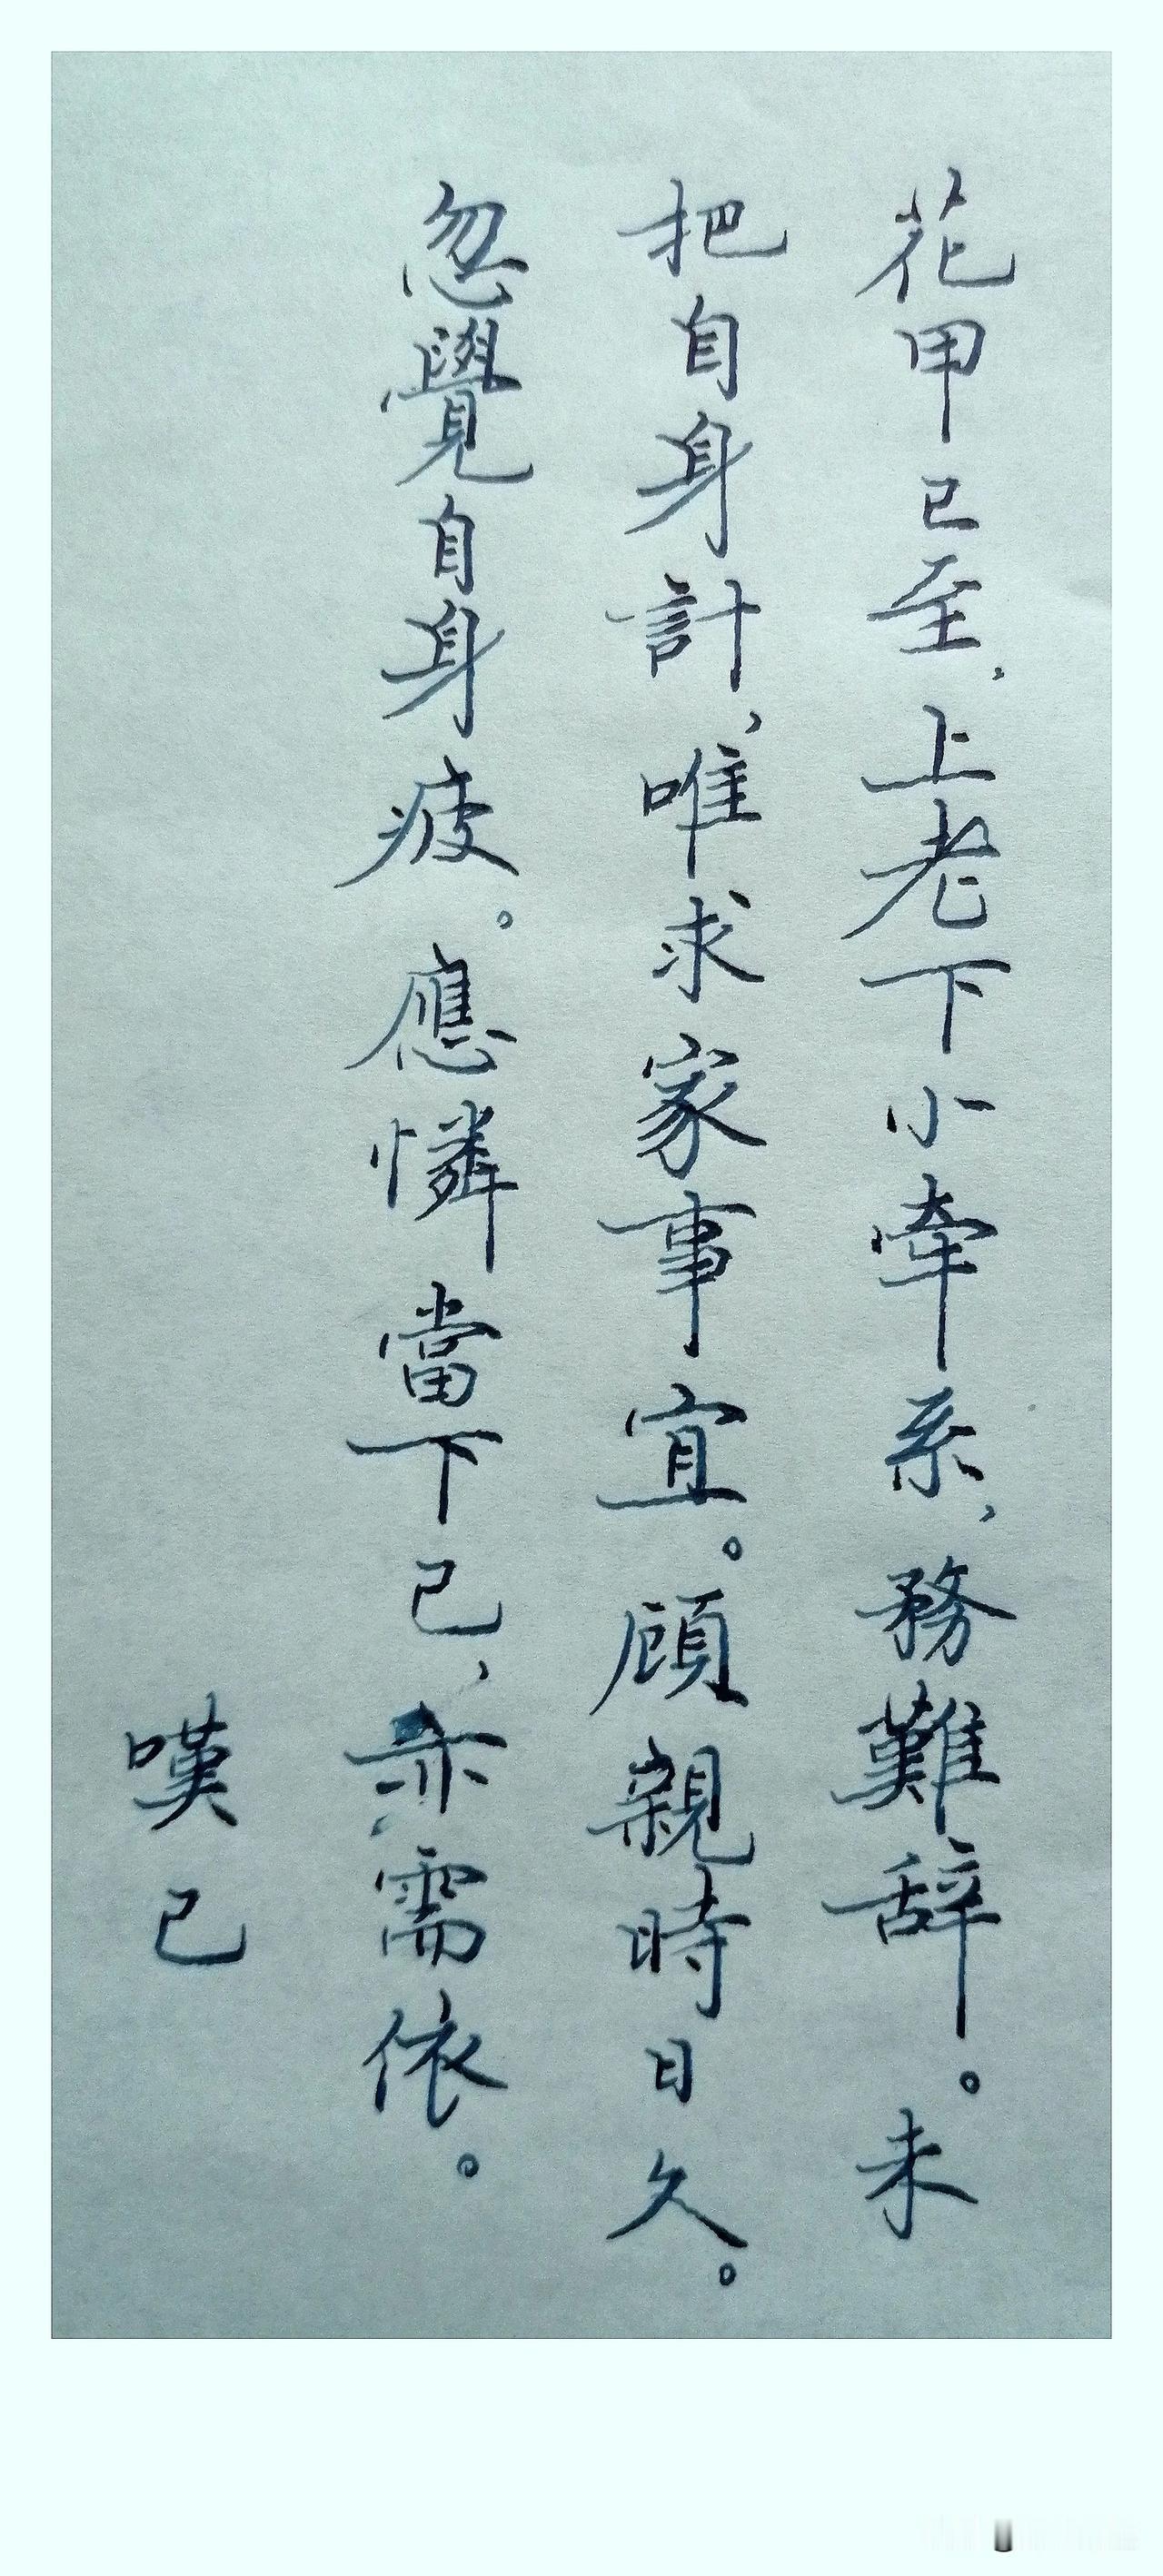 花甲已至，上老下小牽系，務難辞。未
把自身計，唯求家事宜。顧親時日久。
忽覺自身疲。應憐當下己，亦需依。
嘆己